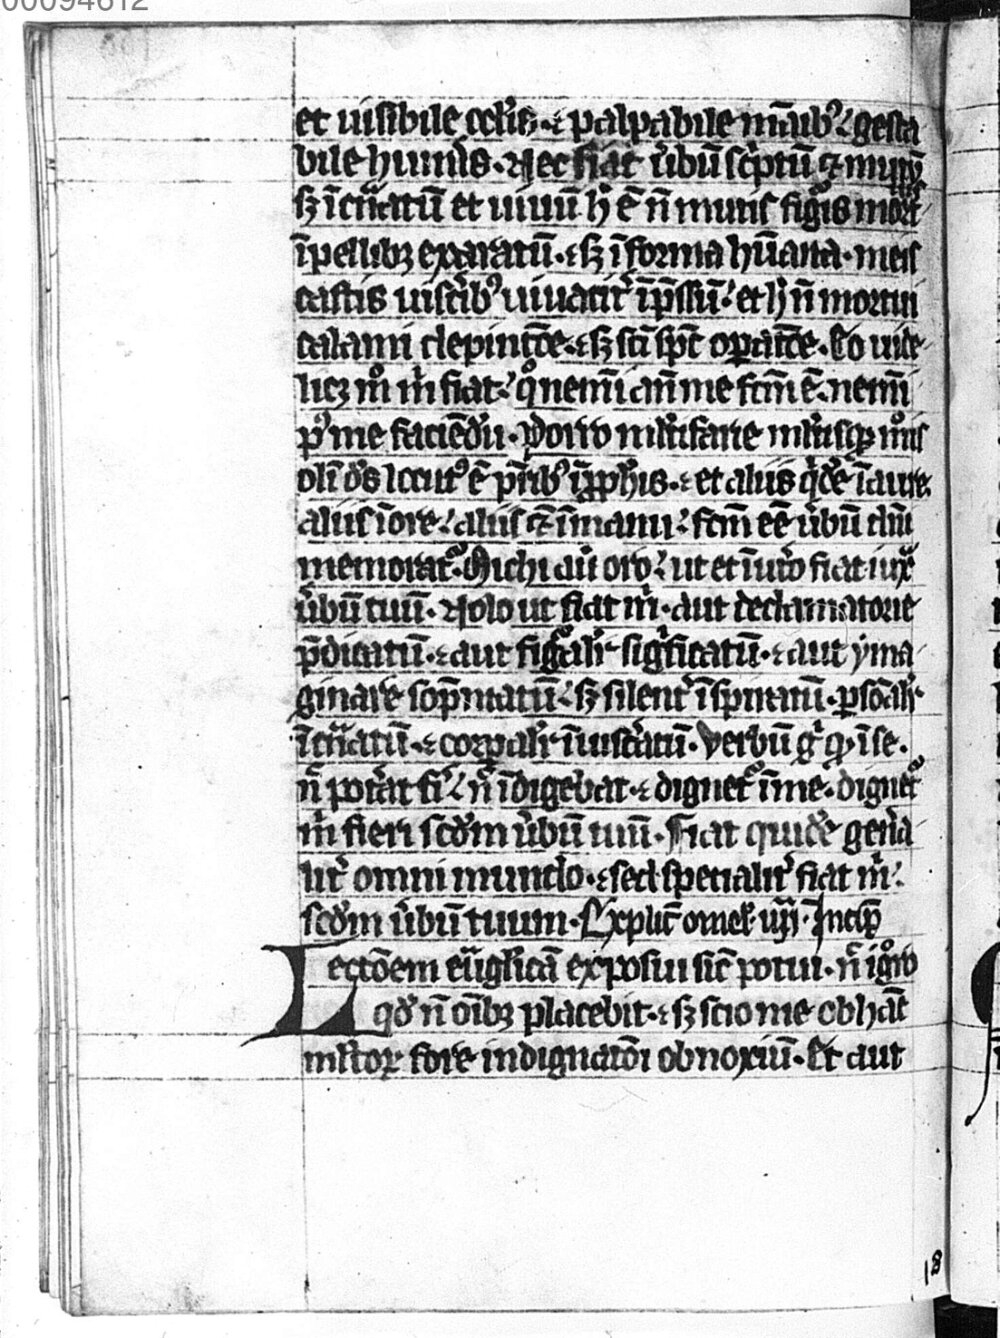 00094612
et uisibile oclis. ⁊ palpabile mānib⁹ gesta
bile hūmis. Nec fiat ūbū sc̓ptū ⁊ mutū
sꝫ īcarnatū et uiuū h̄ ē n̄ mutis figuris mort
ī pellibꝫ exaratū. sꝫ ī forma hūana. meis
castis uiscib⁹ uiuacit̓ īpssū. et h̄ n̄ mortui
calami depinctōe. sꝫ sc̄i sp̄c oꝑatōe. Eo uide
licꝫ mº m̓ fiat. qº nemī an̄ me fcm̄ ē. nemī
pº me faciēdū. Porro mltifarie mltisqꝫ mºis
olī ds̄ locut⁹ ē pr̄ib⁹ ī ꝓphis. et aliis qͥdē ī aure.
aliis ī ore. aliis ⁊ ī manu. fcm̄ eē ūbū dn̄i
memorat̄. Michi aū oro. ut et ī utº fiat iux̄
ūbū tuū. Nolo ut fiat m̓. aut declamatorie
p̄dicatū. aut figͣalit̓ sigͥficatū. aut yma
ginarie sōpniatū. sꝫ silent̓ īspiratū. ꝑsōalit̓
īcarnatū. corꝑalit̓ īuiscatū. Verbū gͥ qͦ ī se.
n̄ potat fi̓. n̄ īdigebat. dignet̄ ī me. dignet̄
m̓ fieri scdm̄ ūbū tuū. Fiat quidē gen̄a
lit̓ omni mundo. sed specialit̓ fiat m̓.
scdm̄ ūbū tuum. Explic̄ omel̓ Incip̄
Lectōem eūglicā exposui sic̄ potui. n̄ igºro
qd̄ n̄ oībꝫ placebit. sꝫ scio me ob hāc
mltoꝝ fore indignatōi obnoxiū. Et aut
18